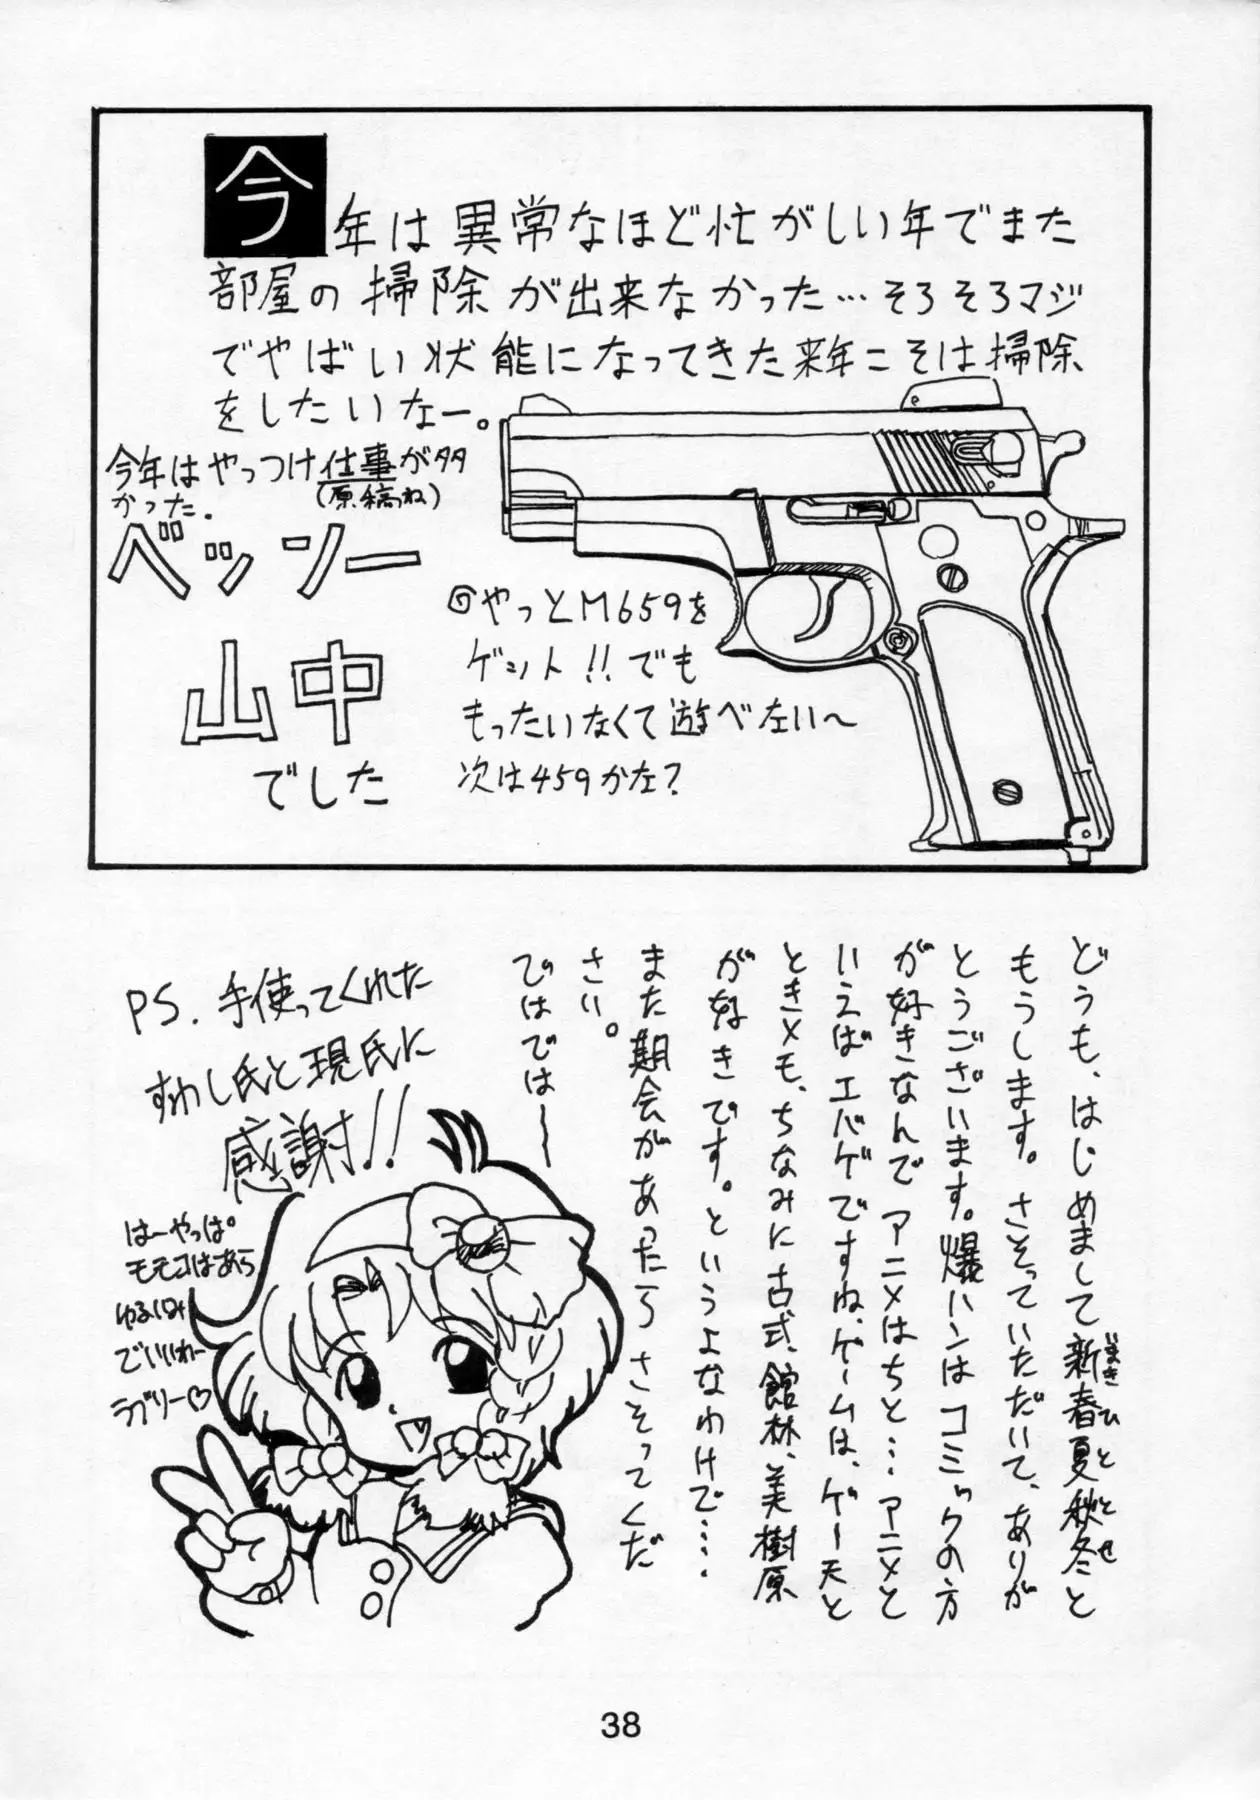 今年は異常なほど忙がしい年でまた
部屋の掃除が出来なかった…そろそろマジ
でやばい状態になってきた来年こそは掃除
をしたいなー。
今年はやっつけ仕事が多
(原稿ね)
かった.
ベッソー
山中
でした
やっとM659を
ゲット!!でも
もったいなくて遊べない〜
次は459かな?
どうも、はじめまして新春夏秋冬と
いまきひととせ
もうします。さそっていただいて、ありが
とうございます。爆ハンはコミックの方
が好きなんでアニメはちと…アニメと
いえばエバゲですね、ゲームは、ゲー天と
ときメモ、ちなみに古式、館林、美樹原
が好きです。というよなわけで….
また期会があったらさそってくだ
さい。
ではでは――
PS.手使ってくれた
すわし氏と現氏に
感謝!!
はーやっぱ
モモコはあら
ゆるいみ
でいいわー
ラブリー♡
38